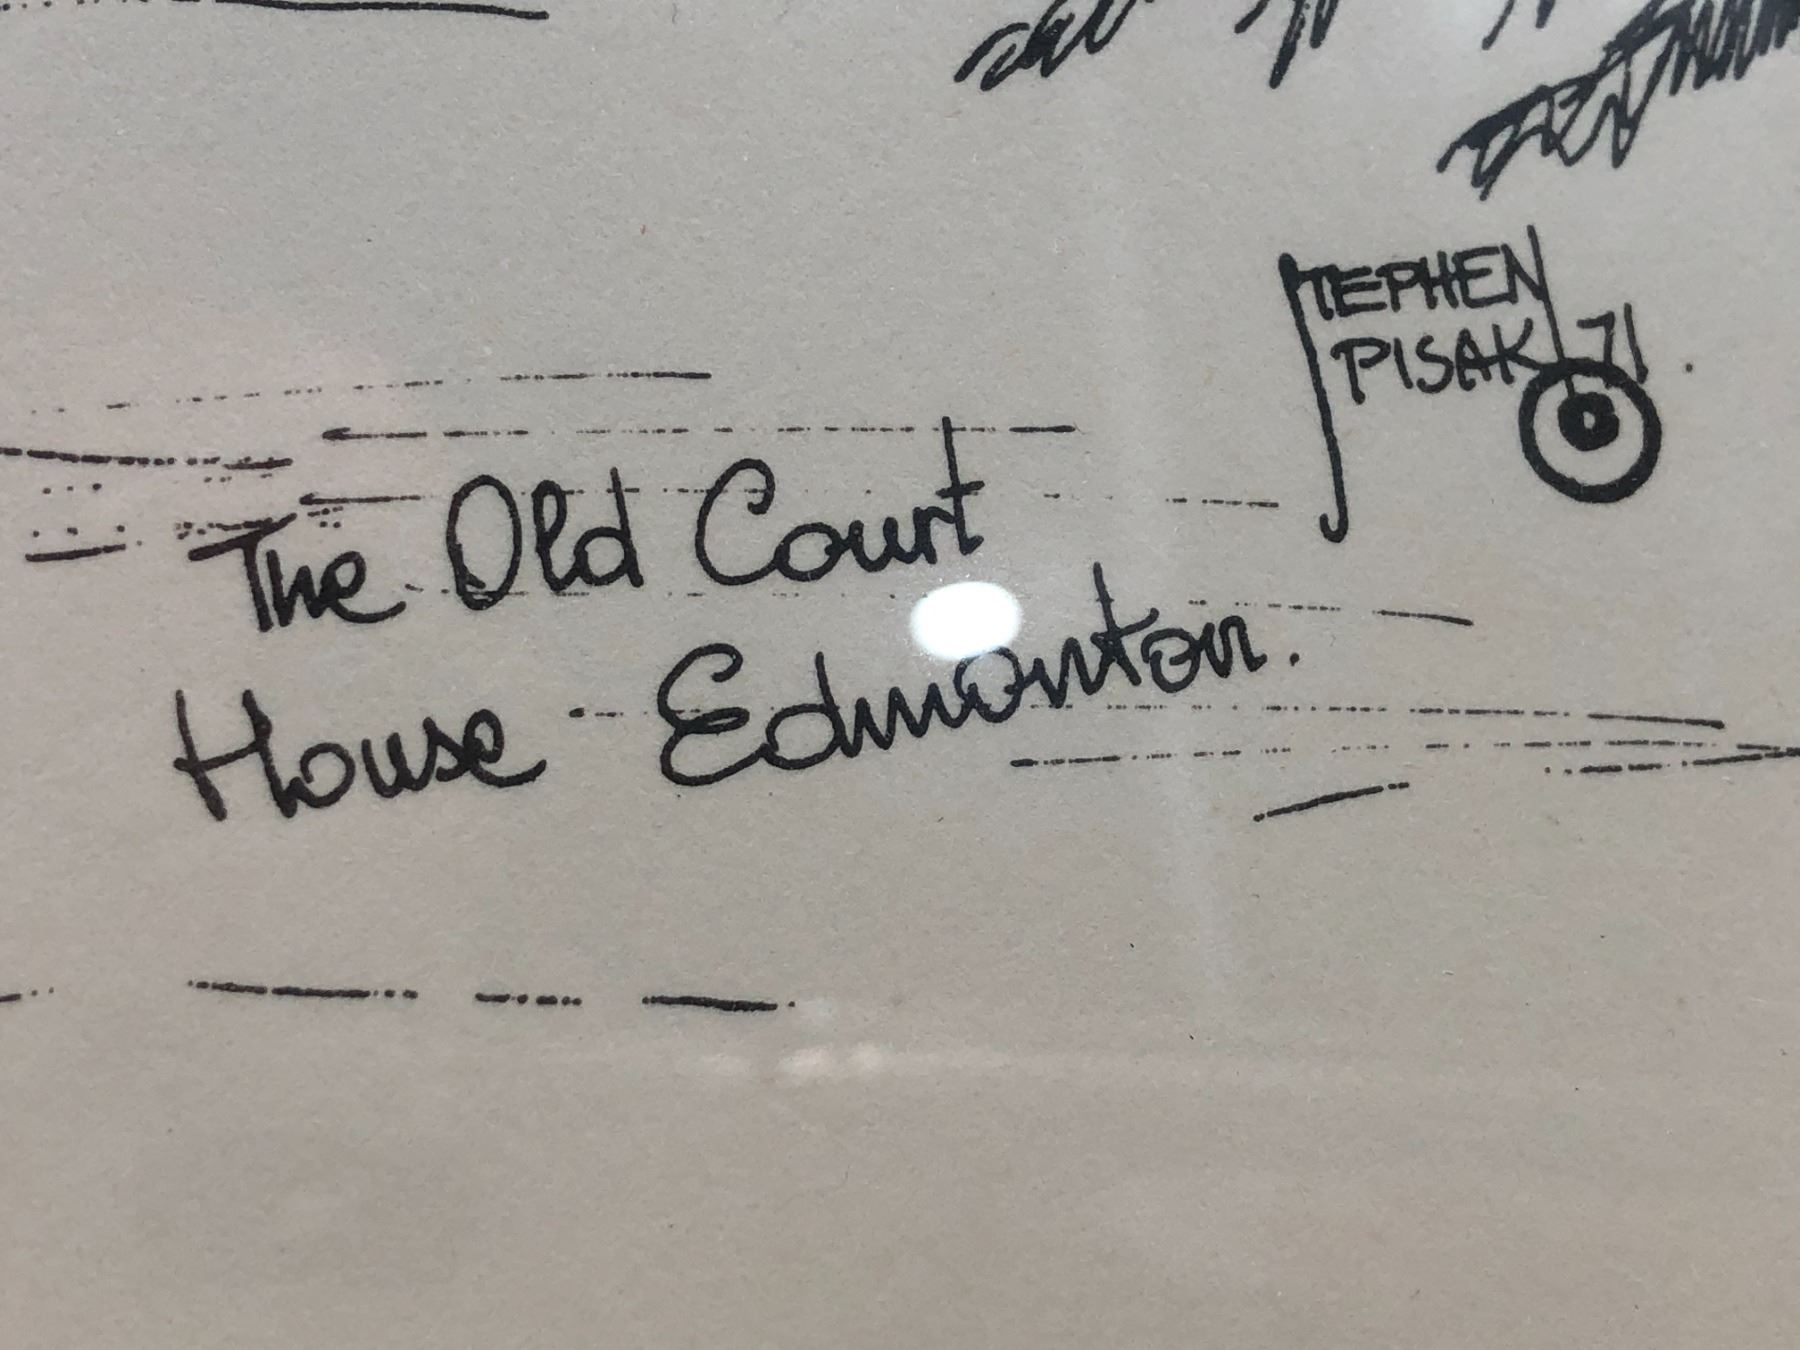 STEPHEN
PISAK 71.
The Old Court
House Edmonton.